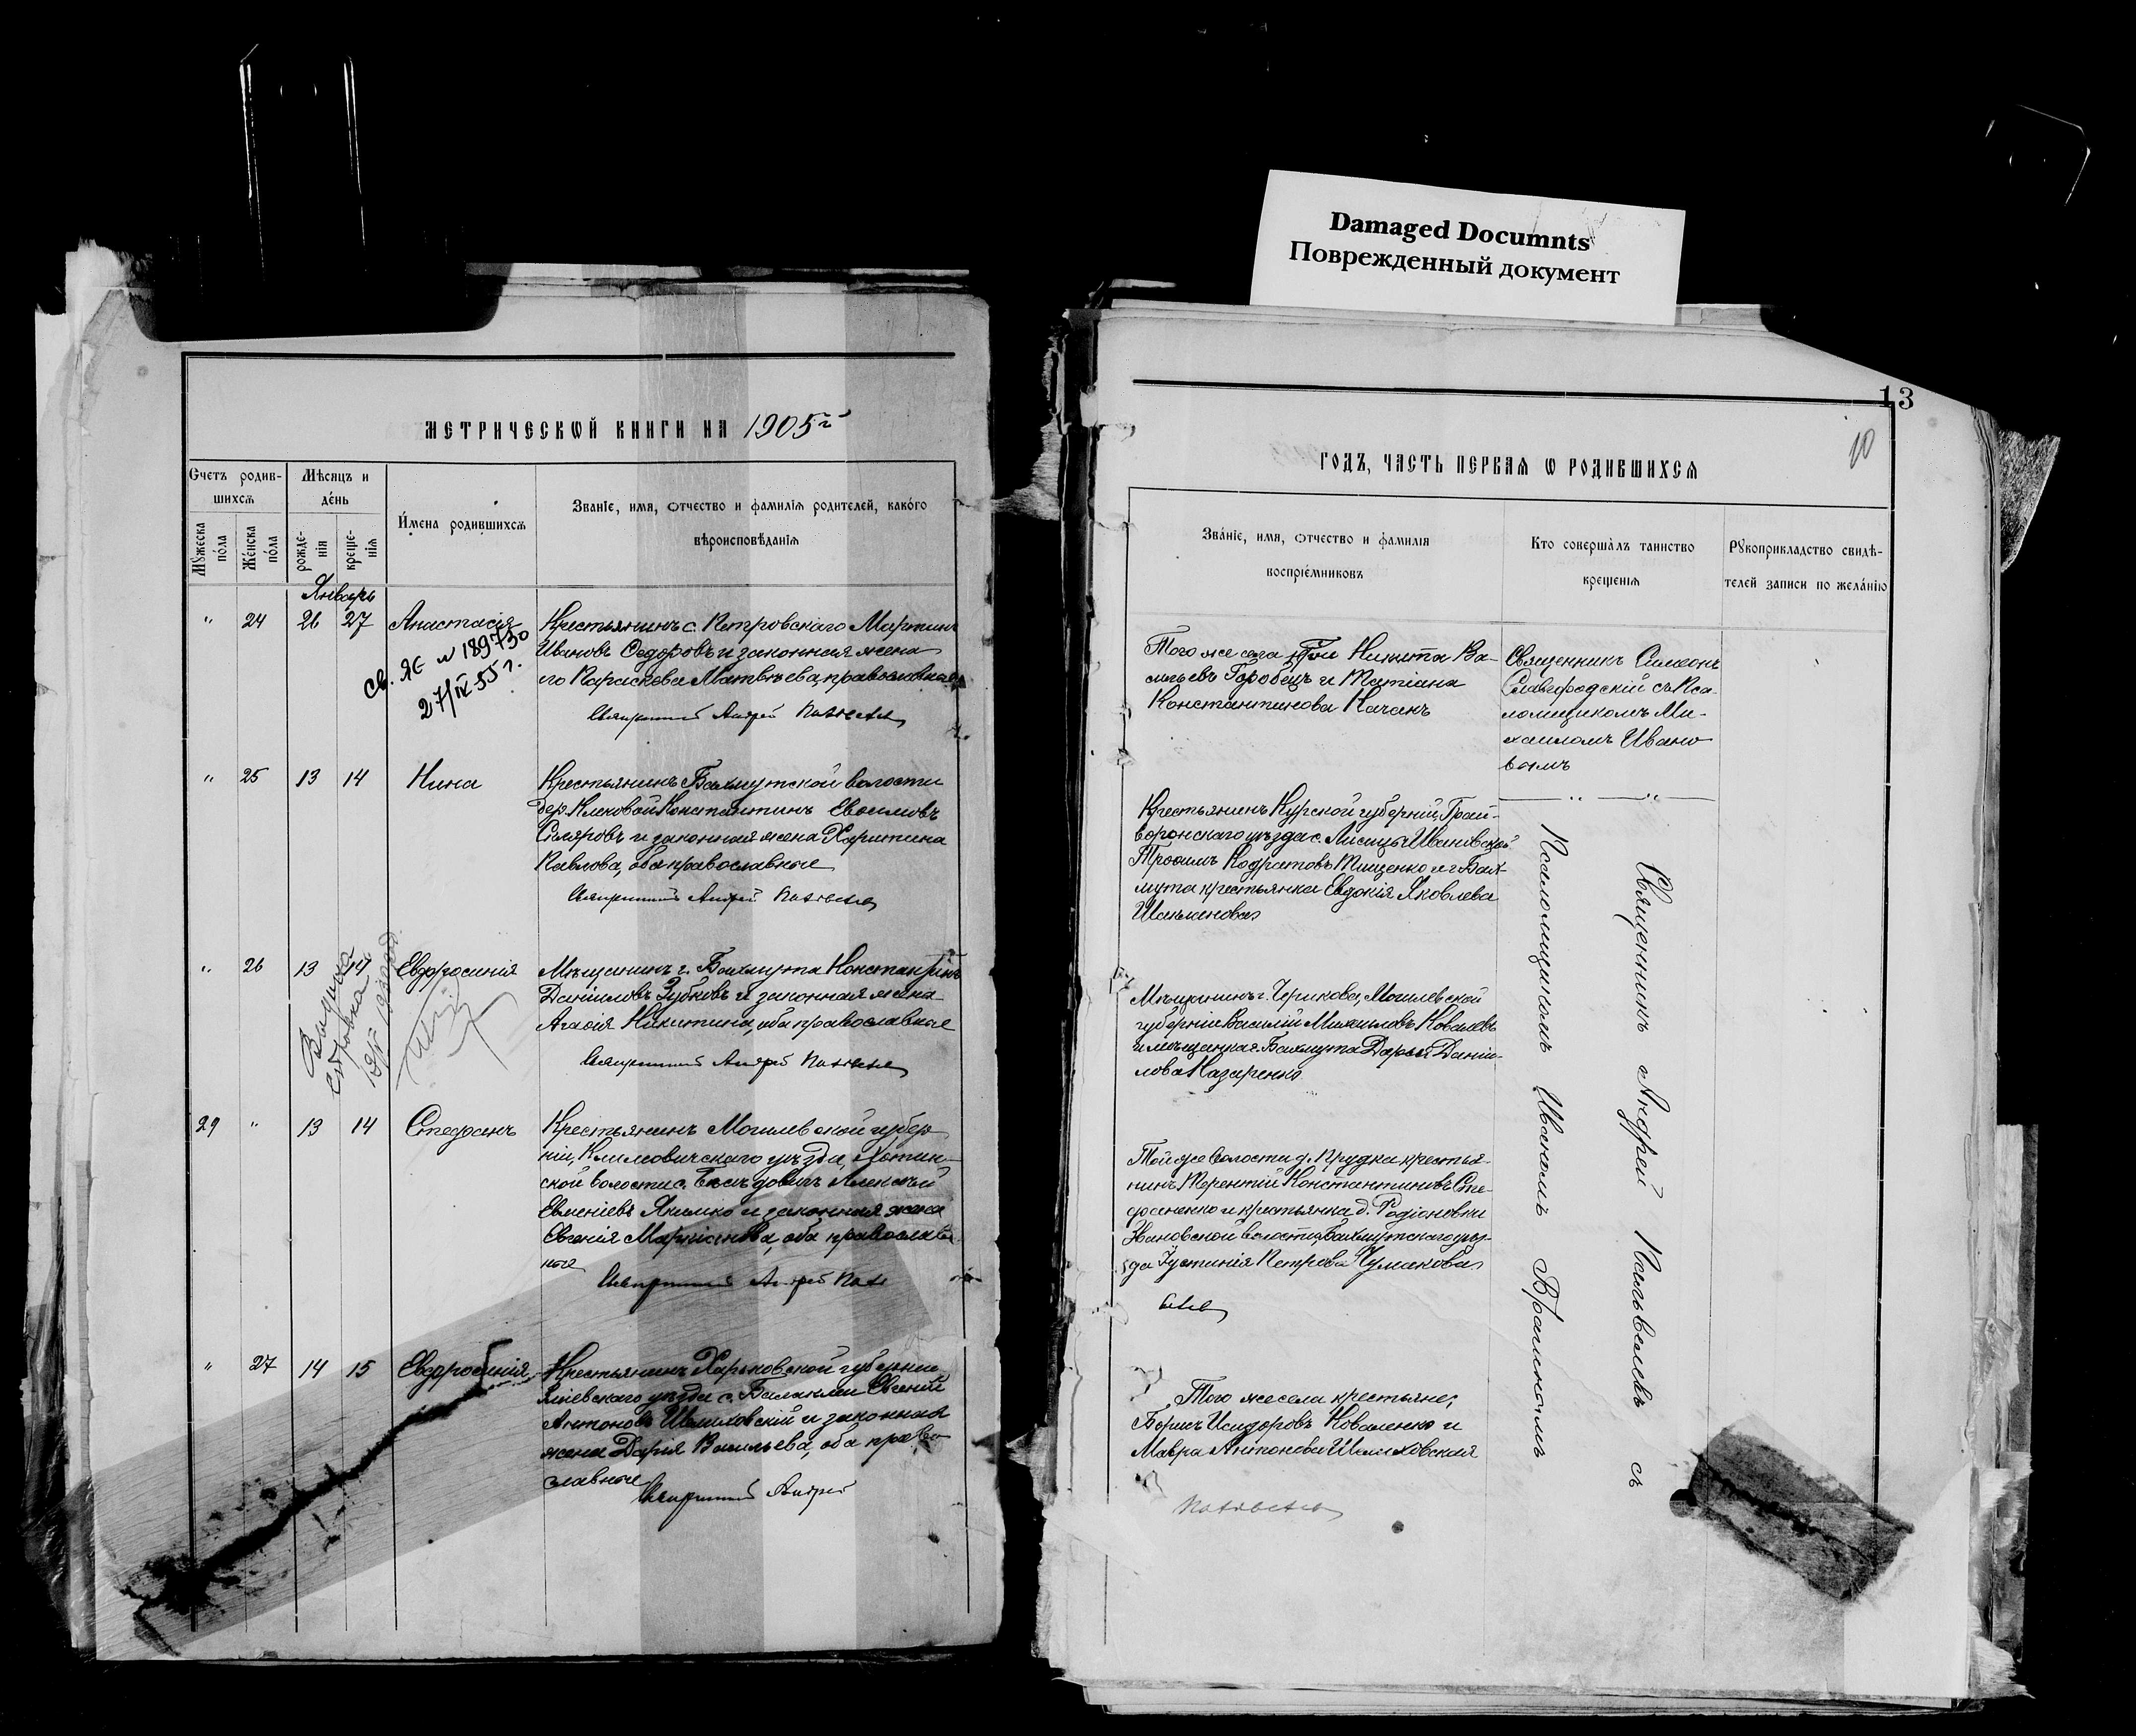 Damaged Documnts
Поврежденный документ
МЕТРИЧЕСКѠЙ КНИГИ НА 1905 г
Счетъ родив-
шихсѧ
Мѣсяцъ и
де́нь
Мꙋжеска
по́ла
Же́нска
по́ла
рожде-
нія
креще-
нія
И́мена родившихсѧ
Званіе, имя, отчество и фамилія родителей, како́го
вѣроисповѣданія
Январь
" 24 26 27 Анастасія
Крестьянинъ с. Петровскаго Мартинъ
Ивановъ Ѳедоровъ и законная жена
его Параскева Матвѣева, православные
Священникъ Андрей
св. ЯЕ № 189730
27/IV 55 г.
" 25 13 14 Нина
Крестьянинъ Бахмутской волости
дер. Клиновой Константинъ Евѳимовъ
Скляровъ и законная жена Харитина
Павлова, оба православные
Священникъ Андрей
" 26 13 14 Евфросинія
Мѣщанинъ г. Бахмута Константинъ
Даниловъ Зубковъ и законная жена
Агаѳія Никитина, оба православные
Священникъ Андрей
29 " 13 14 Стефанъ
Крестьянинъ Могилевской губер-
ніи, Климовичскаго уѣзда, Хотим-
ской волости с. Бѣсѣдовичъ Алексѣй
Евменіевъ Якимко и законная жена
Евгенія Маркіанова, оба православ-
ные
Священникъ Андрей
" 27 14 15 Евфросинія
Крестьянинъ Харьковской губерніи
Зміевскаго уѣзда с. Балаклеи Евгеній
Антоновъ Шелиховскій и законная
жена Дарія Васильева, оба право-
славные
Священникъ Андрей
13
10
ГОДЪ, ЧАСТЬ ПЕРВАѦ Ѡ РОДИВШИХСѦ
Зва́ніе, имя, отчество и фамилія
воспріе́мниковъ
Кто соверша́лъ таинство
крещенія
Рꙋкоприкладство свидѣ-
телей записи по жела́нію
Того же села Никита Ва-
сильевъ Горобецъ и Татіана
Константинова Качанъ
Священникъ Симеонъ
Славгородскій съ Пса-
ломщикомъ Ми-
хаиломъ Ивано
вымъ
Крестьянинъ Курской губерніи, Грай-
воронскаго уѣзда с. Лисицы Ивановской
Трофимъ Кодратовъ Тищенко и г. Бах-
мута крестьянка Евдокія Яковлева
Мѣщанинъ г. Черикова, Могилевской
губерніи Василій Михаиловъ Ковалевъ
и мѣщанка г. Бахмута Дарья Даніи-
лова Назаренко
Той же волости д. Прудка крестья-
нинъ Терентій Константиновъ Сте-
фаненко и крестьянка д. Родіоновки
Звановской волости, Бахмутскаго уѣз-
да Іустинія Петрова Чумакова
Того же села крестьяне,
Борисъ Исидоровъ Коваленко и
Мавра Антонова Шелиховская
Священникъ Андрей съ
Псаломщикомъ Иваномъ